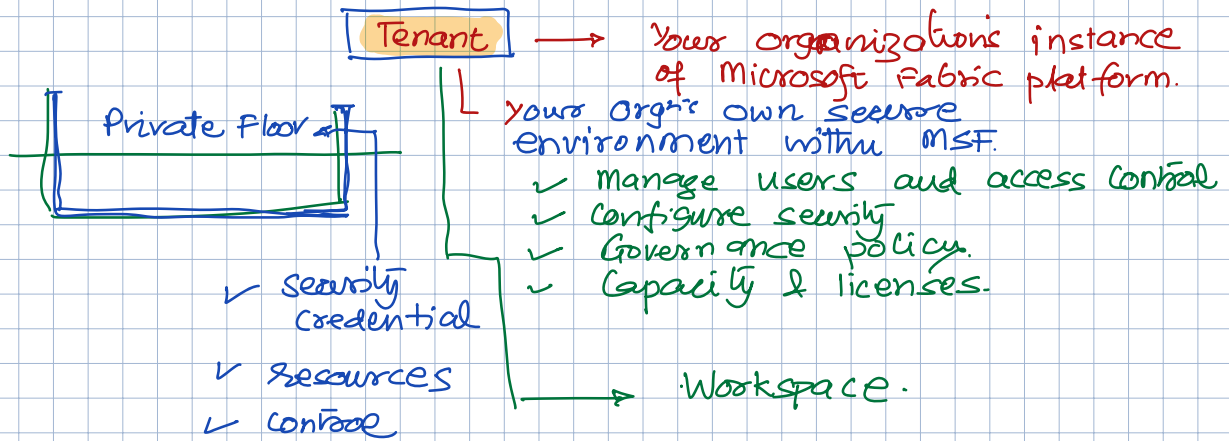 Tenant
Your organization's instance
of Microsoft Fabric platform.
Your Org's own secure
environment within MSF.
Manage users and access control
Configure security
Governance policy.
Capacity & licenses.
Private Floor
security
credential
resources
control
Workspace.